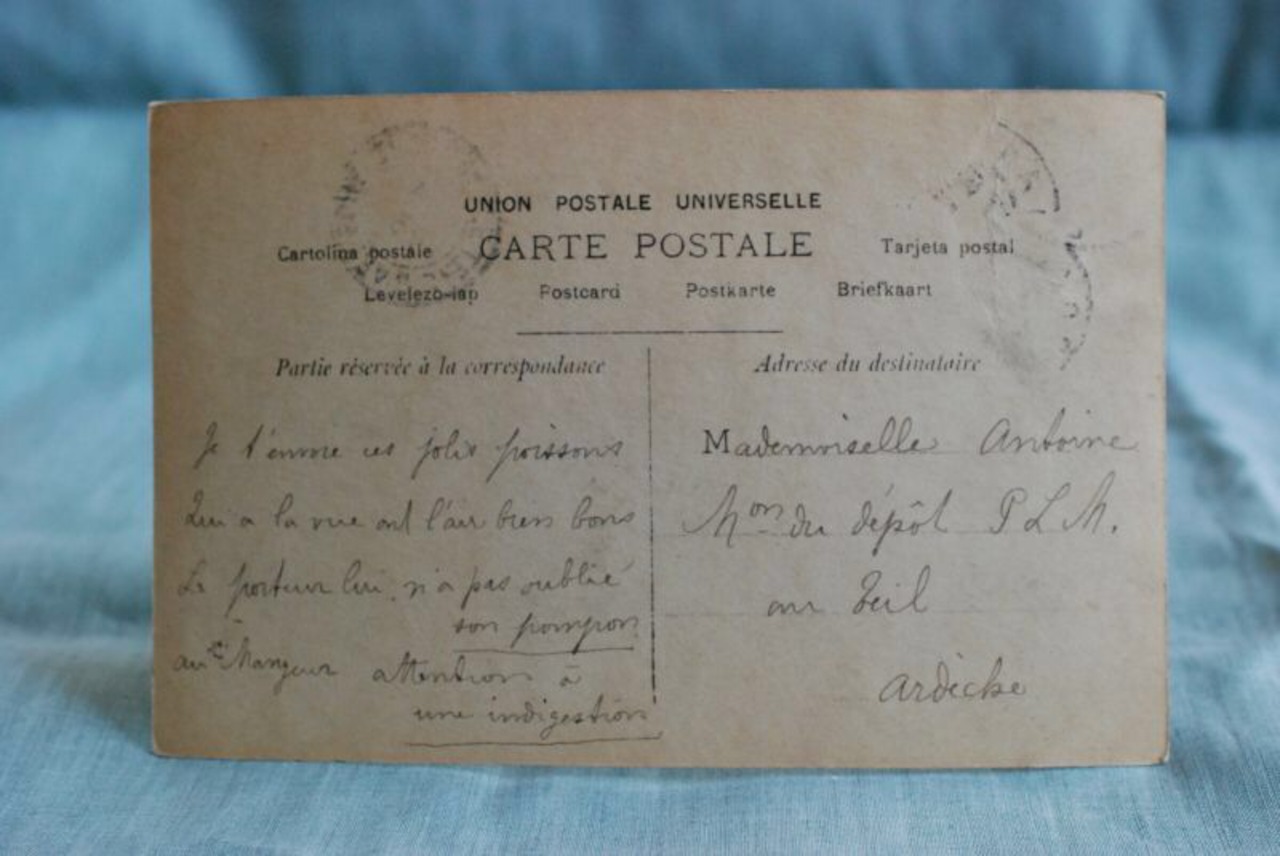 UNION POSTALE UNIVERSELLE
Cartolina postale CARTE POSTALE Tarjeta postal
Levelezo-lap Postcard Postkarte Briefkaart
Partie réservée à la correspondance
Je t'envoie ces jolis poissons
Qui a la vue ont l'air bien bons
Le porteur lui, n'a pas oublié
son pompon
Mangeur attention à
une indigestion
Adresse du destinataire
Mademoiselle Antoine
Mon du dépôt P L M.
au Teil
Ardèche